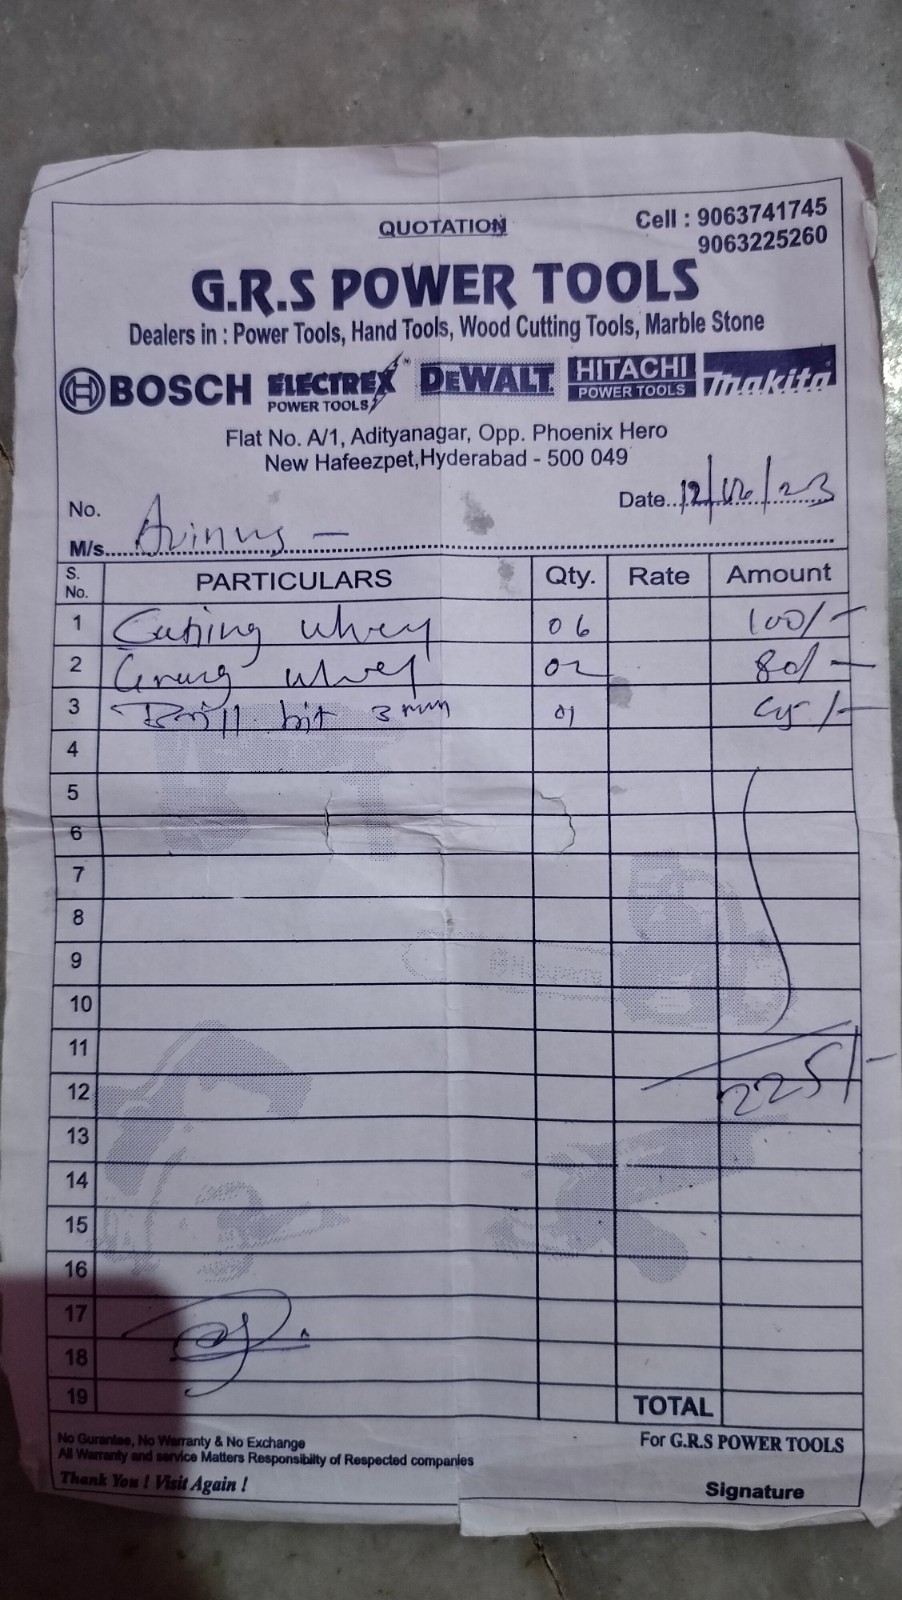 QUOTATION
Cell : 9063741745
9063225260
G.R.S POWER TOOLS
Dealers in : Power Tools, Hand Tools, Wood Cutting Tools, Marble Stone
BOSCH ELECTREX POWER TOOLS DEWALT HITACHI POWER TOOLS makita
Flat No. A/1, Adityanagar, Opp. Phoenix Hero
New Hafeezpet, Hyderabad - 500 049
No.
Date.. 12/06/23
M/s.
S. No. PARTICULARS Qty. Rate Amount
1 Cuting wheey 06 100/-
2 02 80/-
3 Drill bit 3 mm 01 45/-
4
5
6
7
8
9
10
11
12 225/-
13
14
15
16
17
18
19 TOTAL
No Gurantee, No Warranty & No Exchange
For G.R.S POWER TOOLS
All Warranty and service Matters Responsibilty of Respected companies
Thank You ! Visit Again !
Signature